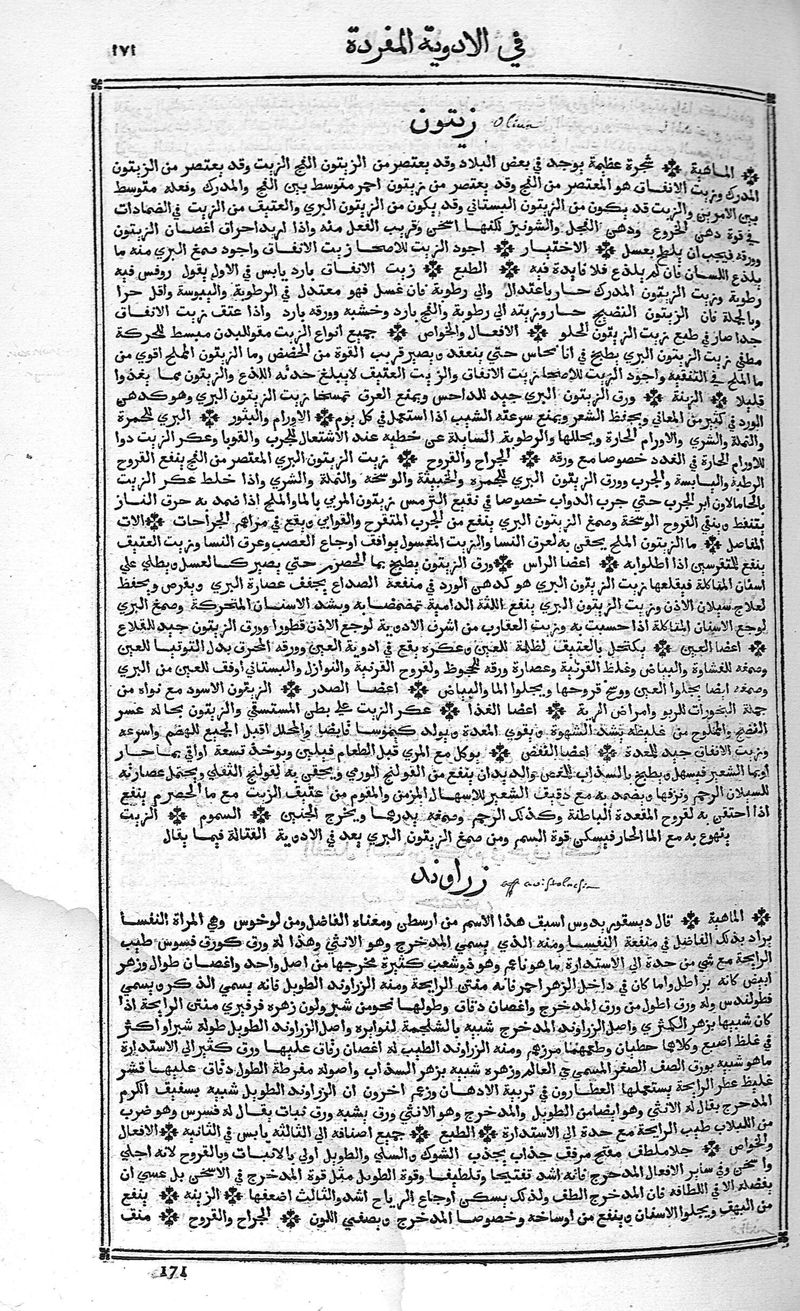 في الادوية المفردة
١٧١
زيتون Oliua
الماهية شجرة عظيمة يوجد في بعض البلاد وقد يعتصر من الزيتون الفج الزيت وقد يعتصر من الزيتون
المدرك وزيت الانفاق هو المعتصر من الفج وقد يعتصر من زيتون احمر متوسط بين الفج والمدرك وفعله متوسط
بين الامرين والزيت قد يكون من الزيتون البستاني وقد يكون من الزيتون البري والعتيق من الزيت في الضمادات
في قوة دهن الخروع ودهن الفجل والشونيز كلها اسخن وقريب الفعل منه واذا اريد احراق اغصان الزيتون
وورقه فيجب ان يلطخ بعسل الاختيار اجود الزيت للاصحا زيت الانفاق واجود صمغ البري منه ما
يلذع اللسان فان لم يلذع فلا فايدة فيه الطبع زيت الانفاق بارد يابس في الاولي يقول روفس فيه
رطوبة وزيت الزيتون المدرك حار باعتدال والي رطوبة فان غسل فهو معتدل في الرطوبة واليبوسة واقل حرا
وبالجملة فان الزيتون النضيج حار وزيته الي رطوبة والفج بارد وخشبه وورقه بارد واذا عتق زيت الانفاق
جدا صار في طبع زيت الزيتون الحلو الافعال والخواص جميع انواع الزيت مقو للبدن مبسط للحركة
مطفي زيت الزيتون البري يطبخ في انا نحاس حتي ينعقد ويصير قريب القوة من الحضض وما الزيتون المملح اقوي من
ما الملح في التنقية واجود الزيت للاصحا زيت الانفاق والزيت العتيق لا يبلغ حدته اللذع والزيتون مما يغذوا
قليلا الزينة ورق الزيتون البري جيد للداحس ويمنع العرق تمسحا زيت الزيتون البري وهو كدهن
الورد في كثير من المعاني ويحفظ الشعر ويمنع سرعة الشيب اذا استعمل في كل يوم الاورام والبثور البري للحمرة
والنملة والشري والاورام الحارة ويحللها والرطوبة السايلة عن خطبه عند الاشتعال للجرب والقوبا وعكر الزيت دوا
للاورام الحارة في الغدد خصوصا مع ورقه الجراح والقروح زيت الزيتون البري المعتصر من الفج ينفع القروح
الرطبة واليابسة والجرب وورق الزيتون البري للحمرة والخبيثة والوسخة والنملة والشري واذا خلط عكر الزيت
بالخامالاون ابر الجرب حتي جرب الدواب خصوصا في نقيع الترمس زيتون المربي بالما والملح اذا ضمد به حرق النار
يتنفط وينقي القروح الوسخة وصمغ الزيتون البري ينفع من الجرب المتقرح والقوابي ويقع في مراهم الجراحات الات
المفاصل ما الزيتون المملح يحقن به لعرق النسا والزيت المغسول يوافق اوجاع العصب وعرق النسا وزيت العتيق
ينفع للنقرسين اذا اطلوا به اعضا الراس ورق الزيتون يطبخ بما الحصرم حتي يصير كالعسل ويطلي علي
اسنان المتاكلة فيقلعها زيت الزيتون البري هو كدهن الورد في منفعة الصداع يجفف عصارة البري ويقرص ويحفظ
لعلاج سيلان الاذن وزيت الزيتون البري ينفع اللثة الدامية تمضمضا به ويشد الاسنان المتحركة وصمغ البري
لوجع الاسنان المتاكلة اذا حسبت به وزيت العقارب من اشرف الادوية لوجع الاذن قطورا وورق الزيتون جيد للقلاع
اعضا العين يكتحل بالعتيق لظلمة العين وعكره يقع في ادوية العين وورقه المحرق بدل التوتيا للعين
وصمغه للغشاوة والبياض وغلظ القرنية وعصارة ورقه للجحوظ ولقروح القرنية والنوازل والبستاني اوفق للعين من البري
وصمغه ايضا يجلوا العين ووسخ قروحها ويجلوا الما والبياض اعضا الصدر الزيتون الاسود مع نواه من
جملة البخورات للربو وامراض الرية اعضا الغذا عكر الزيت علي بطن المستسقي والزيتون بحاله عسر
الهضم والملوح من غليظه يشد الشهوة ويقوي المعدة ويولد كيموسا قابضا والمخلل اقبل الجميع للهضم واسرعه
وزيت الانفاق جيد للمعدة اعضا النفض يوكل مع المري قبل الطعام فيلين ويوخذ تسعة اواقي بما حار
او بما الشعير فيسهل ويطبخ بالسذاب للمغص والديدان ينفع من القولنج الورمي ويحقن به لقولنج الثفلي ويحتمل عصارته
للسيلان الرحم ونزفها ويضمد به مع دقيق الشعير للاسهال المزمن والمقوم من عتيق الزيت مع ما الحصرم ينفع
اذا احتقن به لقروح المقعدة الباطنة وكذلك الرحم وصمغه يدرها ويخرج الجنين السموم الزيت
يتهوع به مع الما الحار فيسكن قوة السم ومن صمغ الزيتون البري يعد في الادوية القتالة فيما يقال
زراوند
الماهية قال ديسقوريدوس اسيف هذا الاسم من ارسطن ومعناه الفاضل ومن لوخوس وهي المراة النفسا
يراد بذلك الفاضل في منفعة النفسا ومنه الذي يسمي المدحرج وهو الانثي وهذا له ورق كورق قسوس طيب
الرايحة مع شي من حدة الي الاستدارة ما هو ناعم وهو ذو شعب كثيرة مخرجها من اصل واحد واغصان طوال وزهر
ابيض كانه براطل واما كان في داخل الزهر احمر فانه منتن الرايحة ومنه الزراوند الطويل فانه يسمي الذكر ويسمي
قطولندس وله ورق اطول من ورق المدحرج واغصان دقاق وطولها نحو من شبر ولون زهره فرفيري منتن الرايحة اذا
كان شبيها بزهر الكمثري واصل الزراوند المدحرج شبيه بالشلجمة لنوابره واصل الزراوند الطويل طوله شبر او اكثر
في غلظ اصبع وكلاهما خطبان وطعمهما مر زهم ومنه الزراوند الطيب له اغصان رقاق عليها ورق كثير الي الاستدارة
ما هو شبيه بورق الصنف الصغير المسمي حي العالم وزهره شبيه بزهر السذاب واصوله مفرطة الطول دقاق عليها قشر
غليظ عطر الرايحة يستعملها العطارون في تربية الادهان وزعم اخرون ان الزراوند الطويل شبيه بسفيف الكرم
المدحرج يقال له الانثي وهو ايضا من الطويل والمدحرج وهو الانثي ورق يشبه ورق نبات يقال له قسوس وهو ضرب
من اللبلاب طيب الرايحة مع حدة الي الاستدارة الطبع جميع اصنافه الي الثالثة يابس في الثانية الافعال
والخواص جلا ملطف مفتح مرقق جذاب يجذب الشوك والسلي والطويل اولي بالانبات وبالقروح لانه اجلي
واسخن وفي ساير الافعال المدحرج فانه اشد تفتيحا وتلطيفا وقوة الطويل مثل قوة المدحرج في الاسخن بل عسي ان
يفضله الا في اللطافة فان المدحرج الطف ولذلك يسكن اوجاع الرياح اشد والثالث اضعفها الزينة ينفع
من البهق ويجلوا الاسنان وينفع من اوساخه وخصوصا المدحرج ويصفي اللون الجراح والقروح منف
171